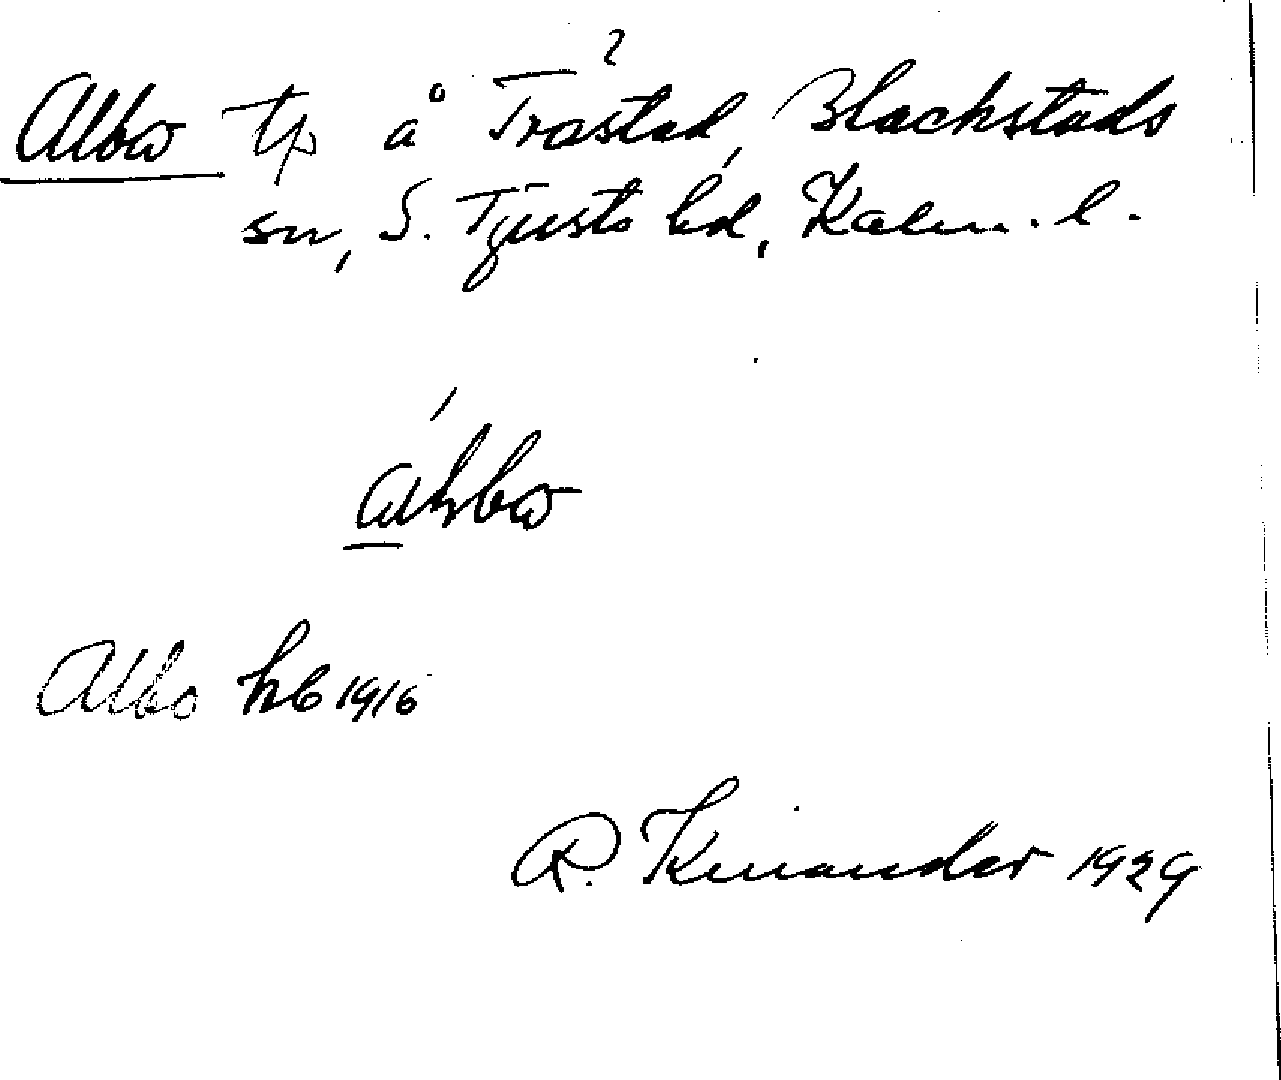 ?
Albo tp å Trostad, Blackstads
sn, S. Tjusts hd, Kalm. l.
Albo hb 1916
R. Kinander 1929